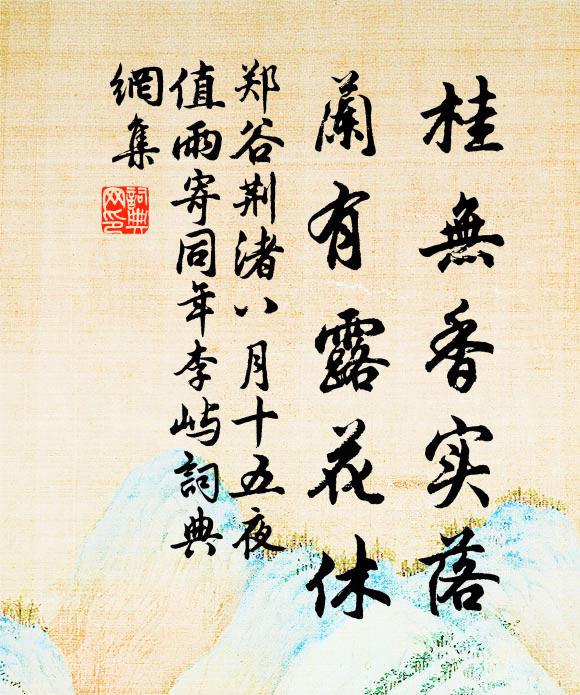 桂無香实落
蘭有露花休
郑谷荆渚八月十五夜
值雨寄同年李屿詞典
網集
詞典
网印